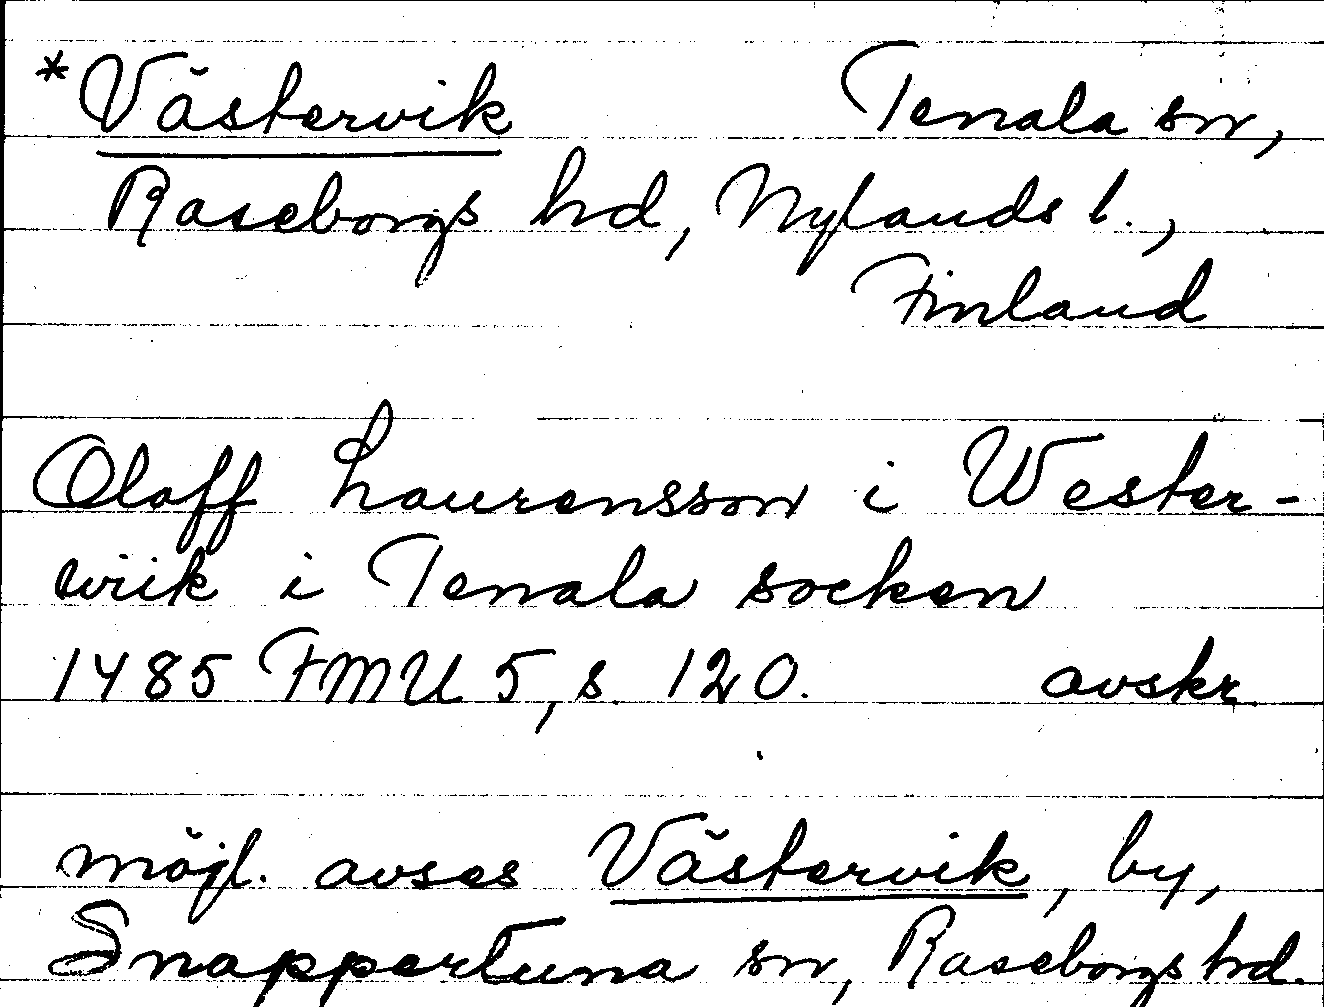 *Västervik Tenala sn,
Raseborgs hd, Nylands l.,
Finland
Oloff Laurensson i Wester-
wiik i Tenala socken
1485 FMU 5, s. 120. avskr.
möjl. avses Västervik, by,
Snappertuna sn, Raseborgs hd.